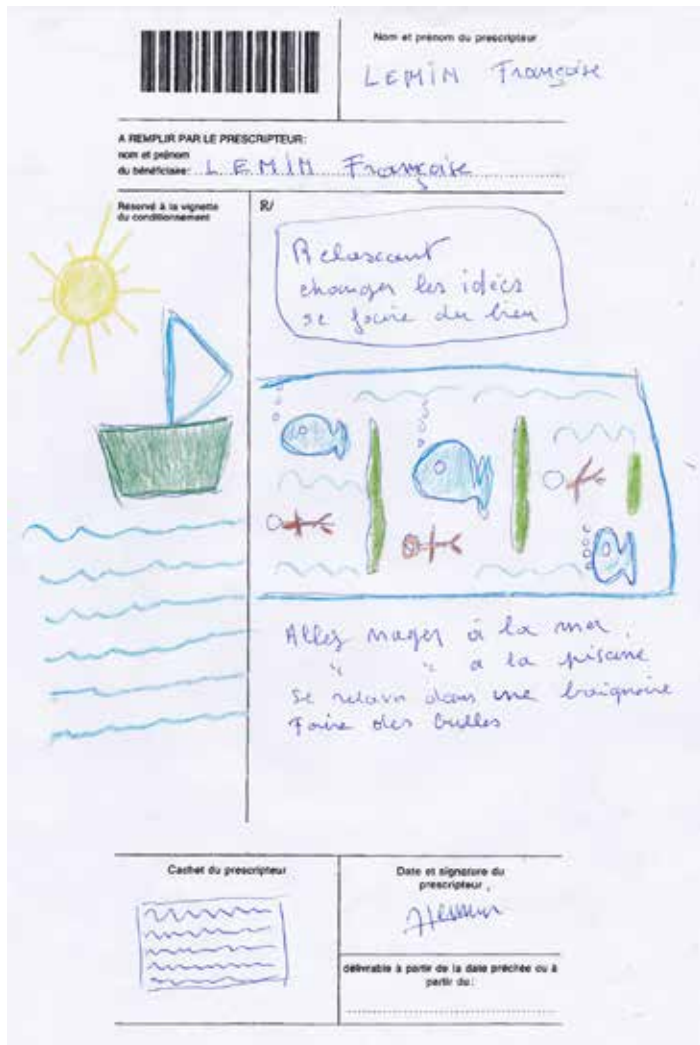 Nom et prénom du prescripteur
LEMIN Françoise
A REMPLIR PAR LE PRESCRIPTEUR:
nom et prénom
du bénéficiaire: LEMIN Françoise
Réservé à la vignette
du conditionnement
R/
Relaxant
changer les idées
se faire du bien
Aller nager à la mer
" " a la piscine
Se relaxer dans une baignoire
Faire des bulles
Cachet du prescripteur
Date et signature du
prescripteur
délivrable à partir de la date précitée ou à
partir du: